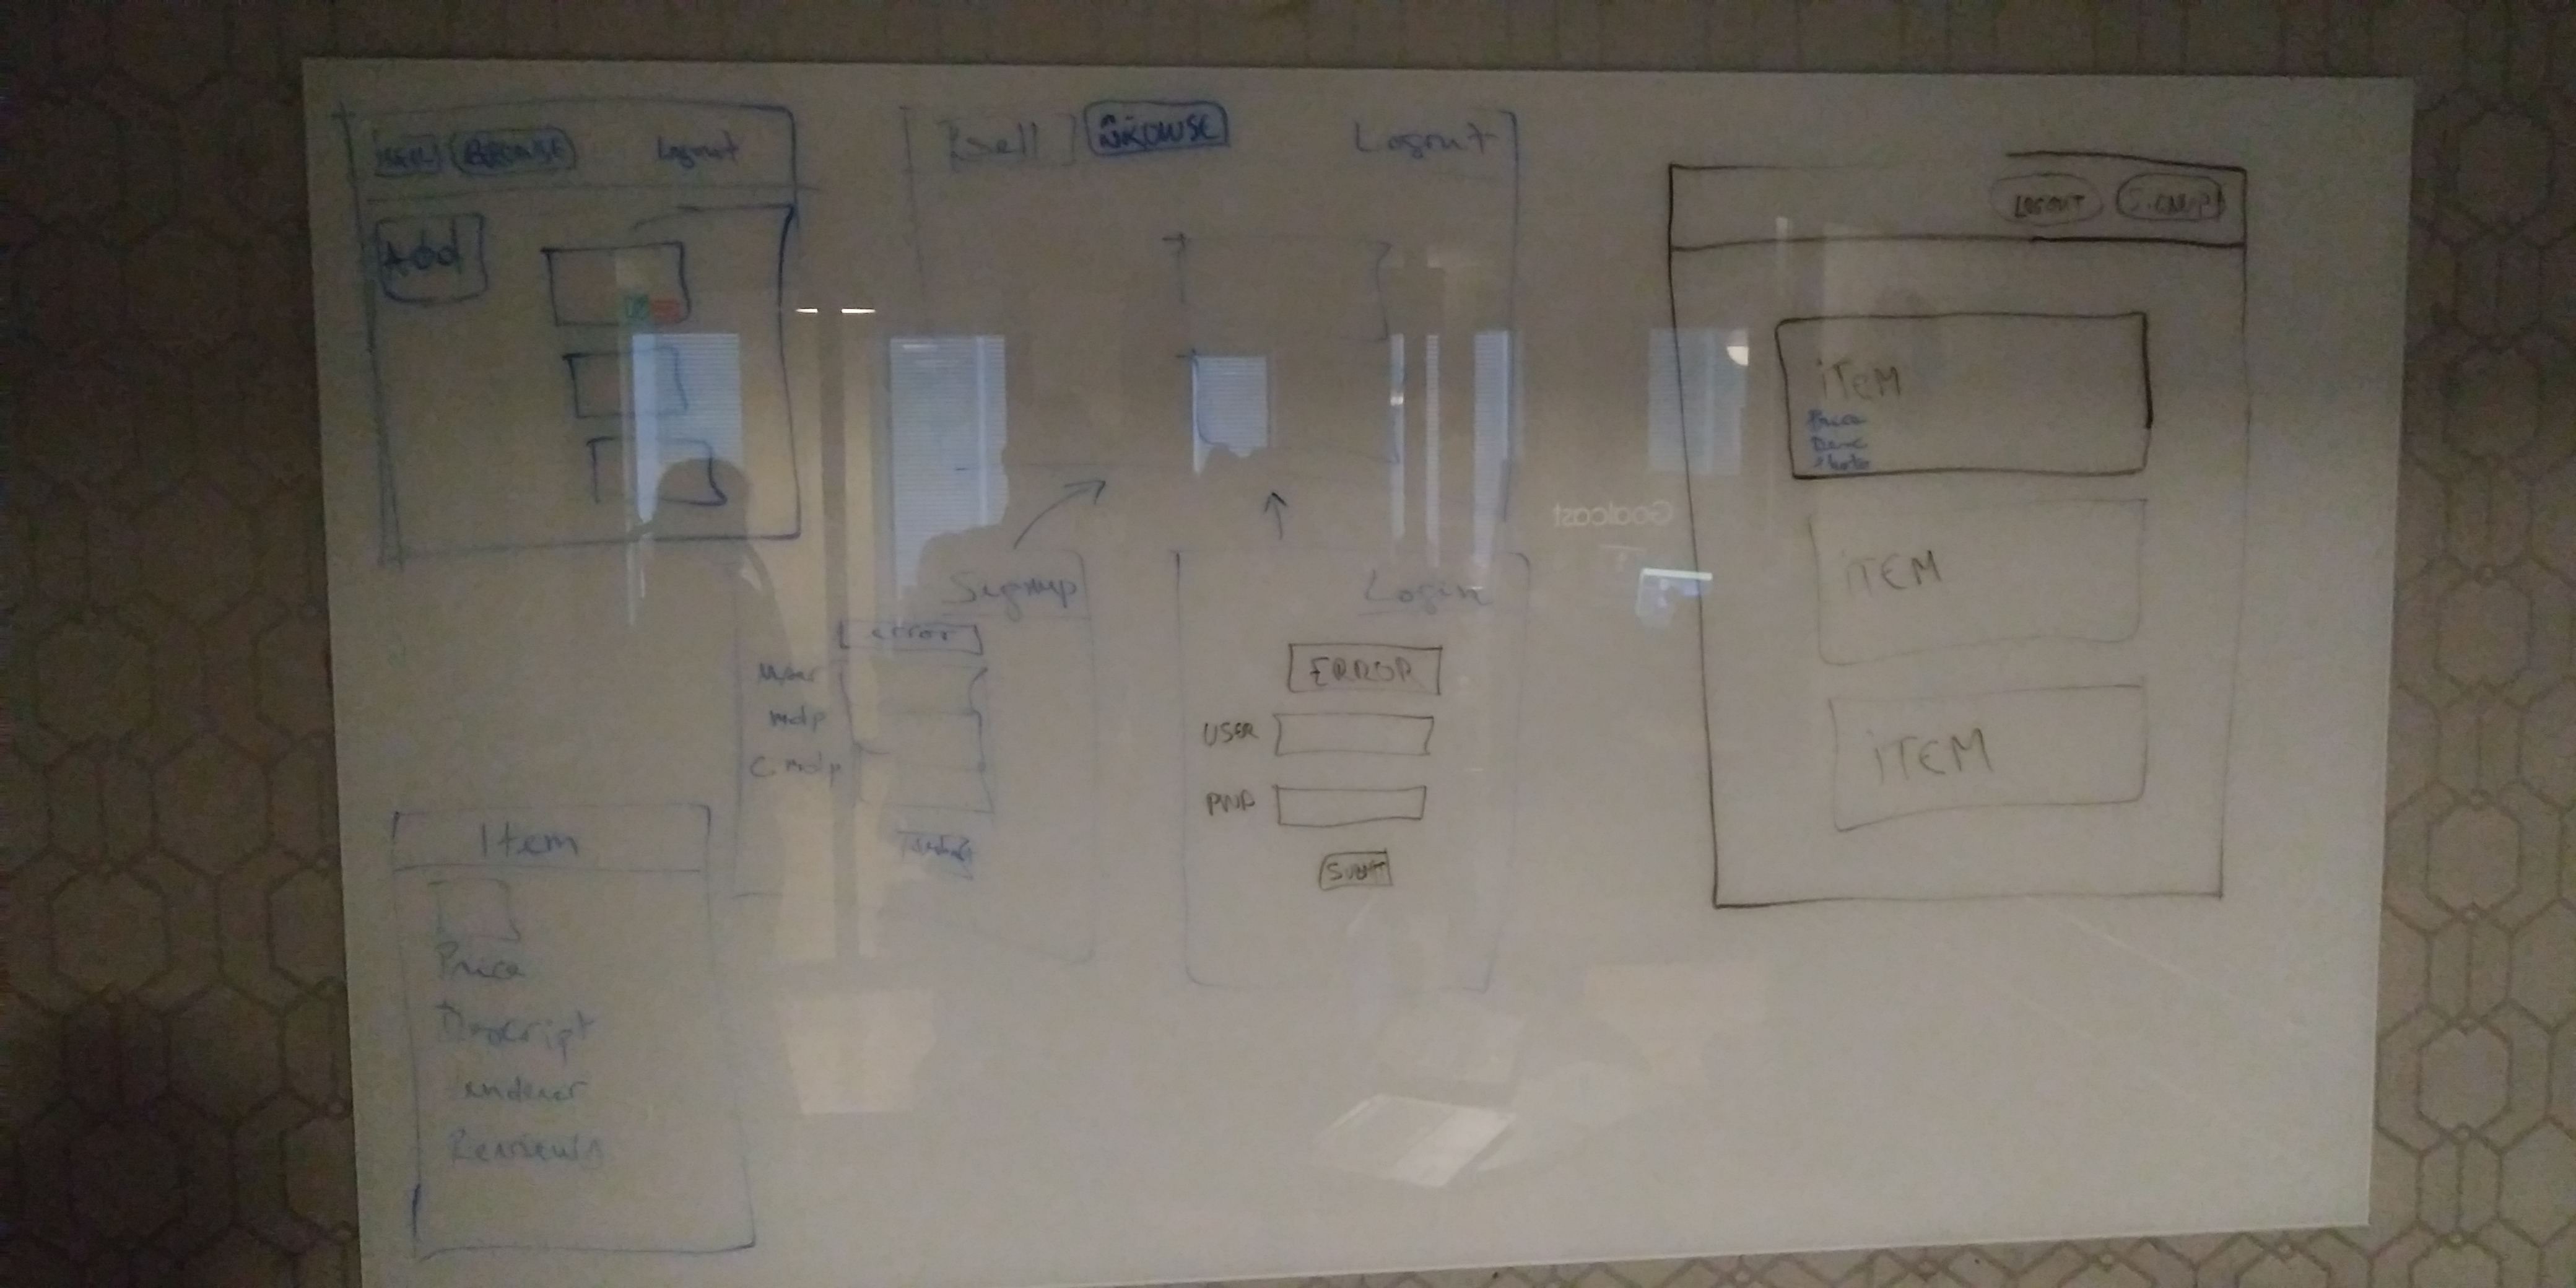 SELL BROWSE Logout
Add
[Sell] BROWSE Logout
LOGOUT SIGNUP
iTeM
Price
Desc
Photo
iTEM
iTEM
Goalcast
Signup
error
User
mdp
C. mdp
Login
ERROR
USER
PWD
SUBMIT
Item
Price
Descript
Reviews